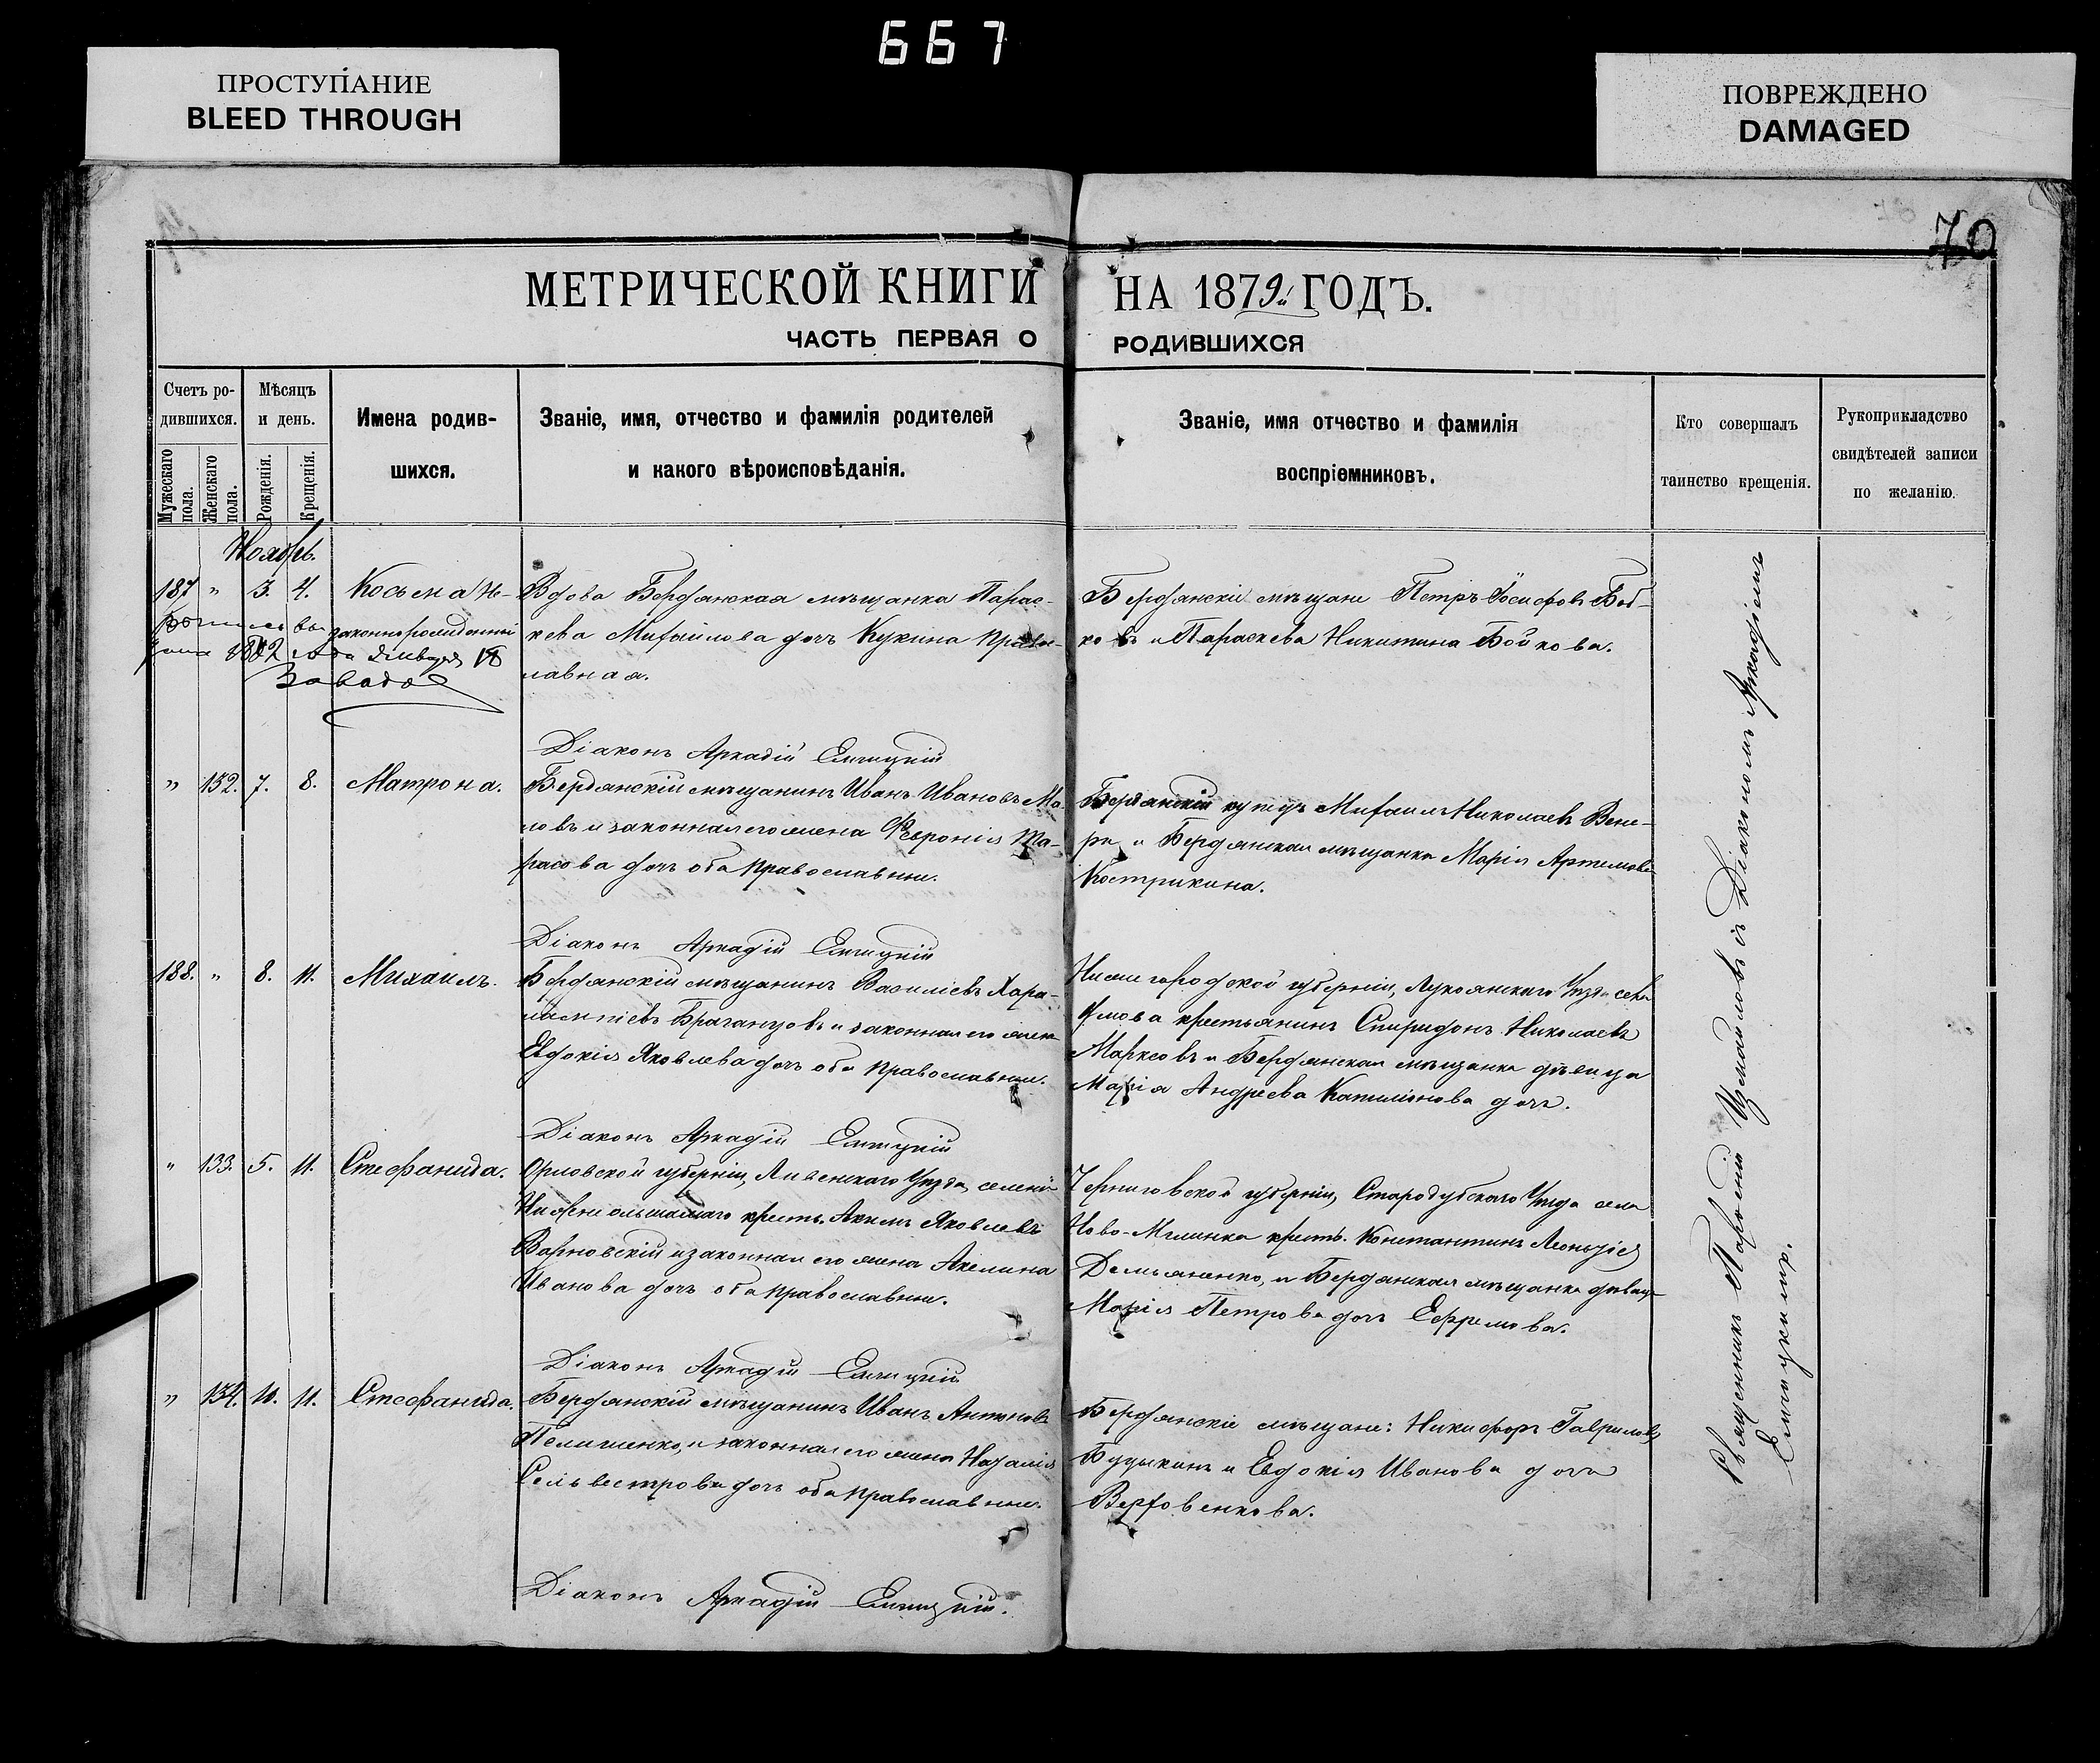 667
ПРОСТУПАНИЕ
BLEED THROUGH
ПОВРЕЖДЕНО
DAMAGED
70
МЕТРИЧЕСКОЙ КНИГИ НА 1879й ГОДЪ.
ЧАСТЬ ПЕРВАЯ О РОДИВШИХСЯ
Счетъ ро-
дившихся.
Мужескаго
пола.
Женскаго
пола.
Мѣсяцъ
и день.
Рожденія.
Крещенія.
Имена родив-
шихся.
Званіе, имя, отчество и фамилія родителей
и какого вѣроисповѣданія.
Званіе, имя отчество и фамилія
воспріемниковъ.
Кто совершалъ
таинство крещенія.
Рукоприкладство
свидѣтелей записи
по желанію.
Ноябрь.
187 " 3. 4. Косьма не-
законнорожденный
1882 года
Вдова Бердянская мѣщанка Парас-
кева Михайлова дочь Кукина Правос-
лавная.
Бердянскіе мѣщане Петръ Іосифовъ Бой-
ковъ и Параскева Никитина Бойкова.
Діаконъ Аркадій
" 132. 7. 8. Матрона.
Бердянскій мѣщанинъ Иванъ Ивановъ Ма-
ловъ и законная его жена Февронія Та-
расова дочь оба Православные.
Бердянскій купецъ Михаилъ Николаевъ Вене-
ри и Бердянская мѣщанка Марія Артемова
Кострикина.
Діаконъ Аркадій
188. " 8. 11. Михаилъ.
Бердянскій мѣщанинъ Василіевъ Хара-
лампіевъ и законная его жена
Евдокія Яковлева дочь оба Православные.
Нижегородской губерніи, Лукоянскаго Уѣзда села
крестьянинъ Спиридонъ Николаевъ
Марксовъ и Бердянская мѣщанка дѣвица
Марія Андреева дочь.
Діаконъ Аркадій
" 133. 5. 11. Стефанида.
Орловской губерніи, Ливенскаго Уѣзда, селенія
крестъ. Акимъ Яковлевъ
Варновскій и законная его жена Акелина
Иванова дочь оба Православные.
Черниговской губерніи, Стародубскаго Уѣзда села
Ново-Млинка крестъ. Константинъ
Демьяненко, и Бердянская мѣщанка дѣвица
Марія Петрова дочь Ефремова.
Діаконъ Аркадій
" 134. 10. 11. Стефанида.
Бердянскій мѣщанинъ Иванъ Антоновъ
и законная его жена Наталія
Сельвестрова дочь оба Православные.
Бердянскіе мѣщане: Никифоръ Гавриловъ
Будыкинъ и Евдокія Иванова дочь
Верховенкова.
Діаконъ Аркадій
Священникъ Парѳеній Измайловъ съ Діакономъ Аркадіемъ